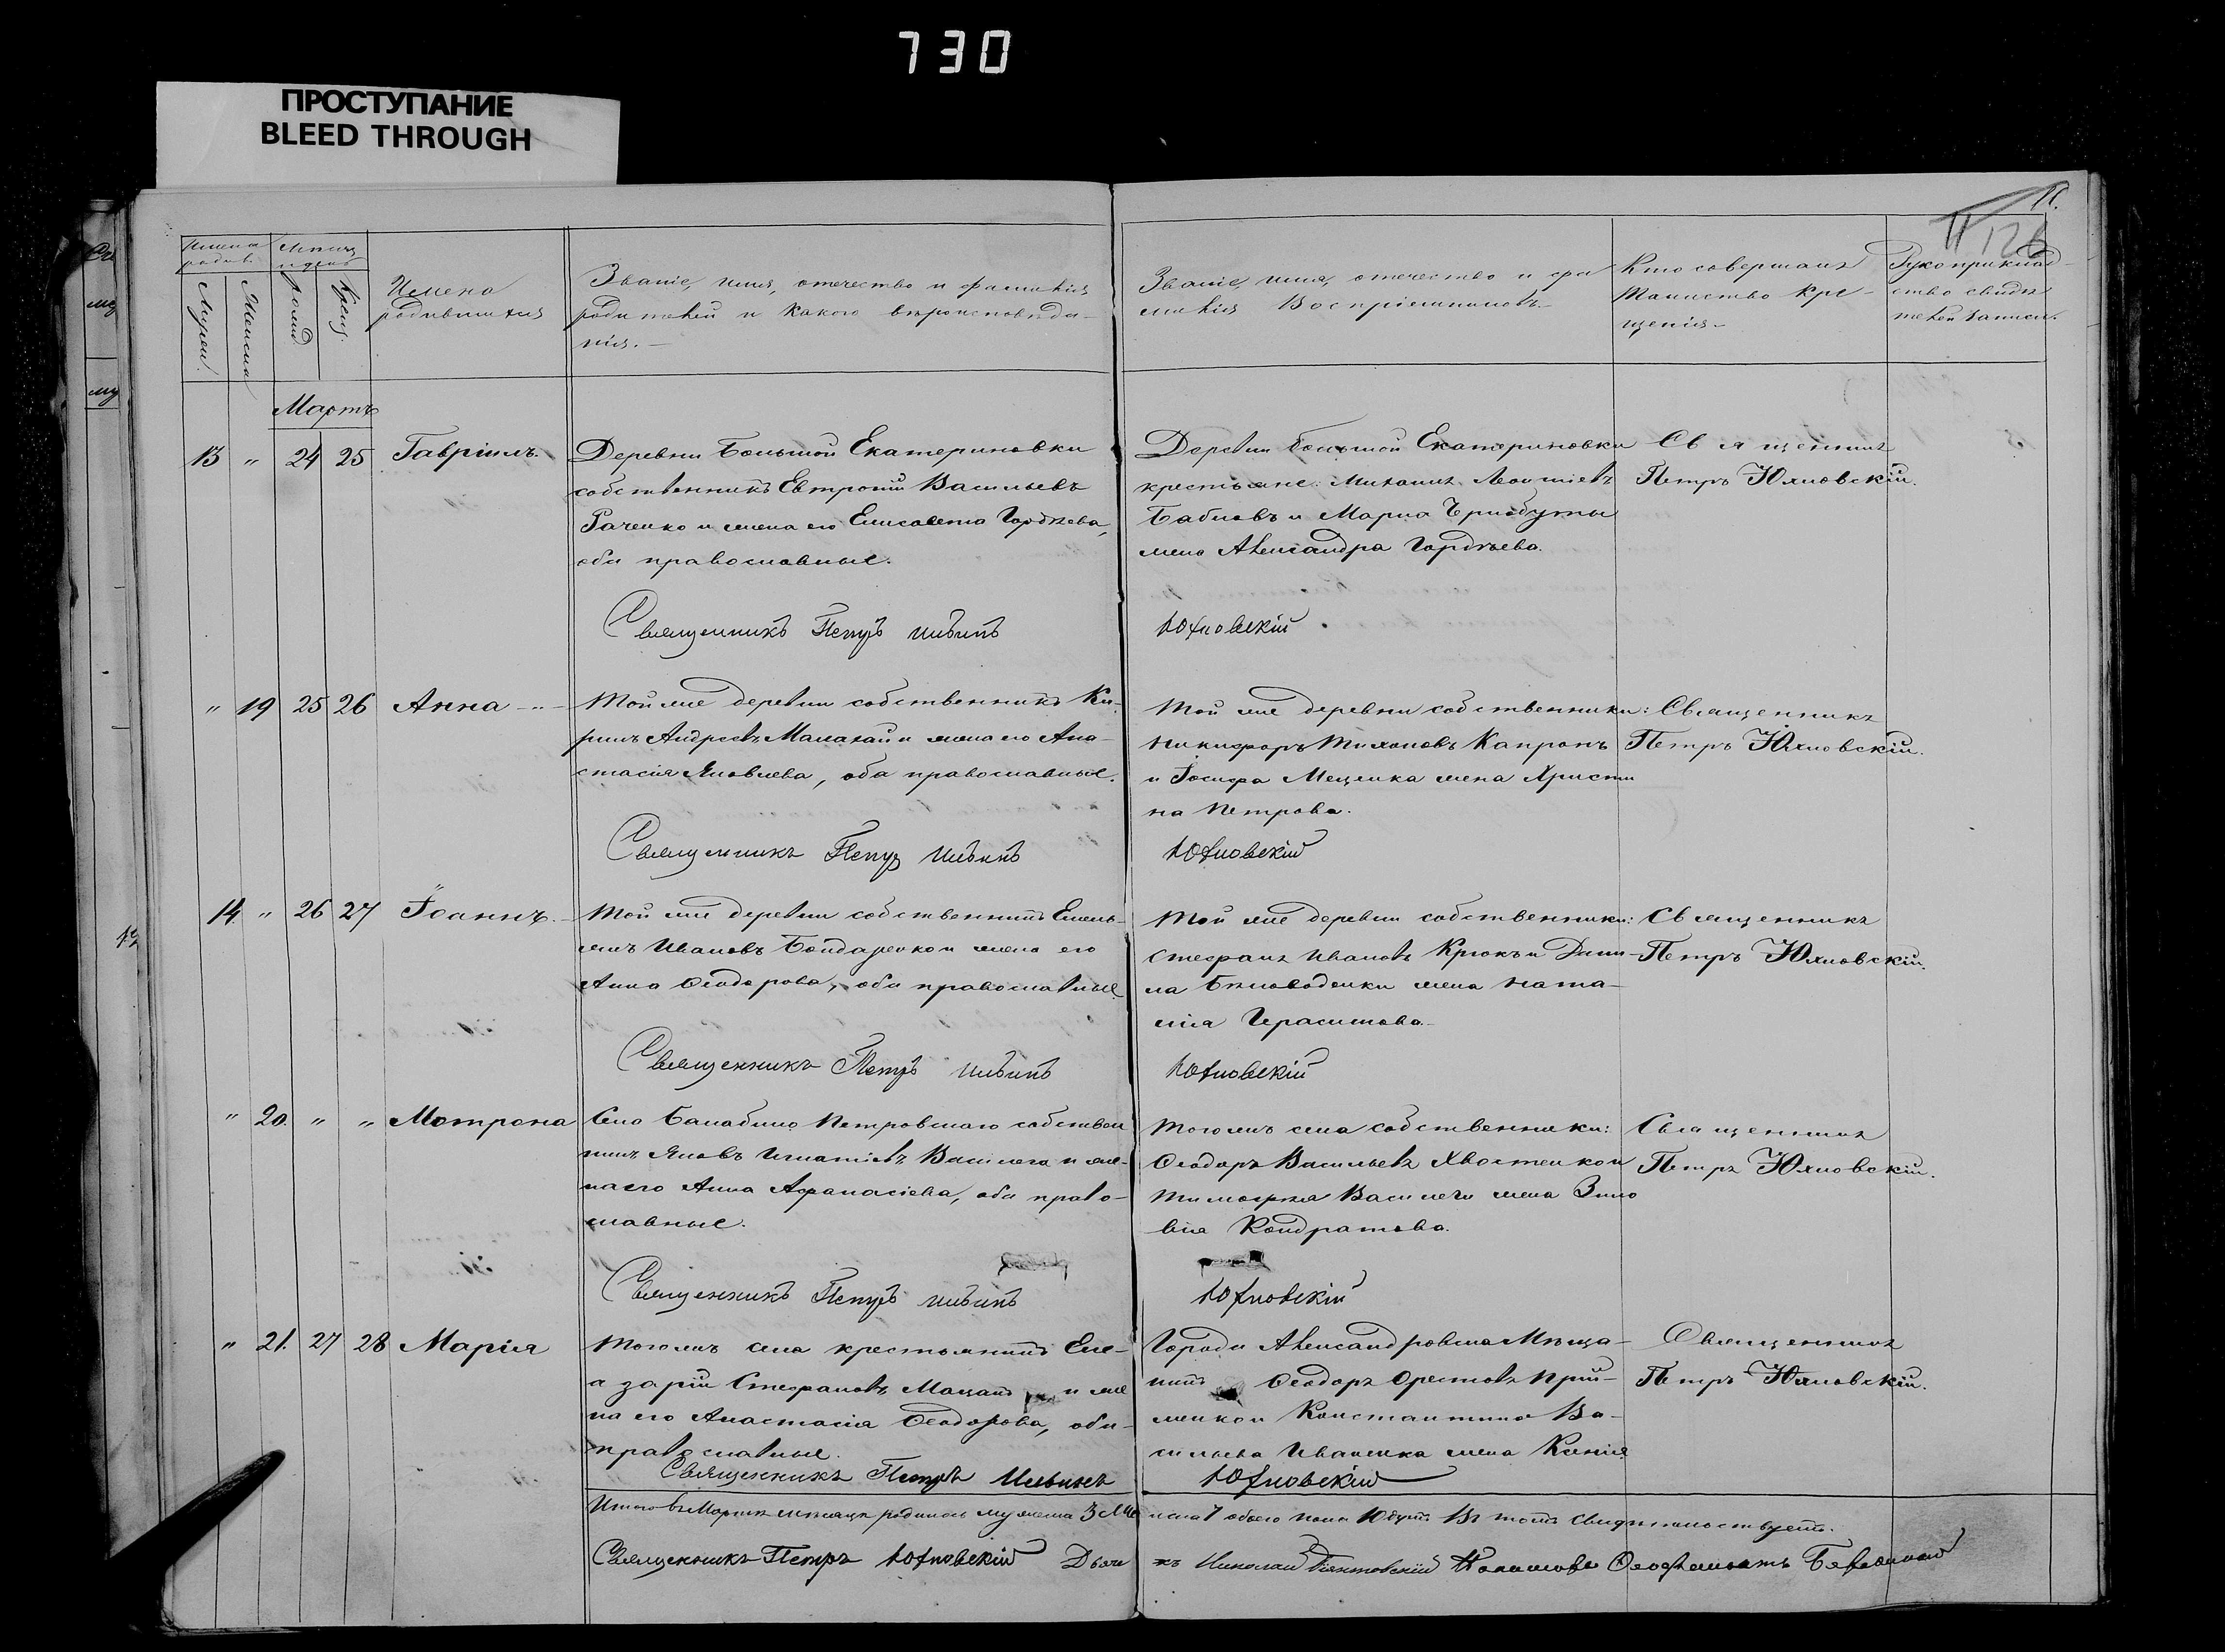 730
ПРОСТУПАНИЕ
BLEED THROUGH
11.
126
Мужеск.
Женска
рожд
Крещ.
Имена
родившихся
Званіе, имя, отечество и фамилія
родителей и какого вѣроисповѣда-
нія.
Званіе, имя, отечество и фа
милія Воспріемниковъ.
Кто совершалъ
таинство кре-
щенія
Рукоприклад-
ство свидѣ
телей записи.
Мартъ
13 " 24 25 Гавріилъ.
Деревни Большой Екатериновки
собственникъ Евтропій Васильевъ
Раченко и жена его Елисавета Гордѣева,
оба православные.
Деревни большой Екатериновки
крестьяне: Михаилъ Леонтіевъ
Бабковъ и Марка
жена Александра Гордѣева.
Священникъ
Петръ Юхновскій.
Священникъ Петръ Ильинъ Юхновскій
" 19 25 26 Анна
Той же деревни собственникъ Ки-
рилъ Андреевъ Малахай и жена его Ана-
стасія Яковлева, оба православные.
Той же деревни собственники:
Никифоръ Тихоновъ Капронъ
и Іосифа Мещенка жена Христи
на Петрова.
Священникъ
Петръ Юхновскій.
Священникъ Петръ Ильинъ Юхновскій
14. " 26 27 Іоаннъ.
Той же деревни собственникъ Емель-
янъ Ивановъ Бондаренко и жена его
Анна Ѳеодорова, оба православные
Той же деревни собственники:
Стефанъ Ивановъ Крюкъ и Дани-
ла Бѣловоденки жена Ната-
лія Герасимова.
Священникъ
Петръ Юхновскій.
Священникъ Петръ Ильинъ Юхновскій
" 20. " " Мотрона
Села Балабино Петровскаго собствен
никъ Яковъ Игнатіевъ Василега и же-
на его Анна Афанасіева, оба право-
славные.
Того жъ села собственники:
Ѳеодоръ Васильевъ Хвостенко и
Тимофея Василеги жена Зино
вія Кондратова.
Священникъ
Петръ Юхновскій.
Священникъ Петръ Ильинъ Юхновскій
" 21. 27 28 Марія
Того жъ села крестьянинъ Еле-
азарій Стефановъ и же
на его Анастасія Ѳеодорова, оба
православные.
Города Александровска Мѣща-
нинъ Ѳеодоръ Орестовъ Прий-
менко и Константина Ва-
сильева Иваненка жена Ксенія
Священникъ
Петръ Юхновскій.
Священникъ Петръ Ильинъ Юхновскій
Итого въ Мартѣ мѣсяцѣ родилось мужеска 3 женска 7 обоего пола 10 душъ Въ томъ свидѣтельствуетъ.
Священникъ Петръ Юхновскій Дьячекъ Николай